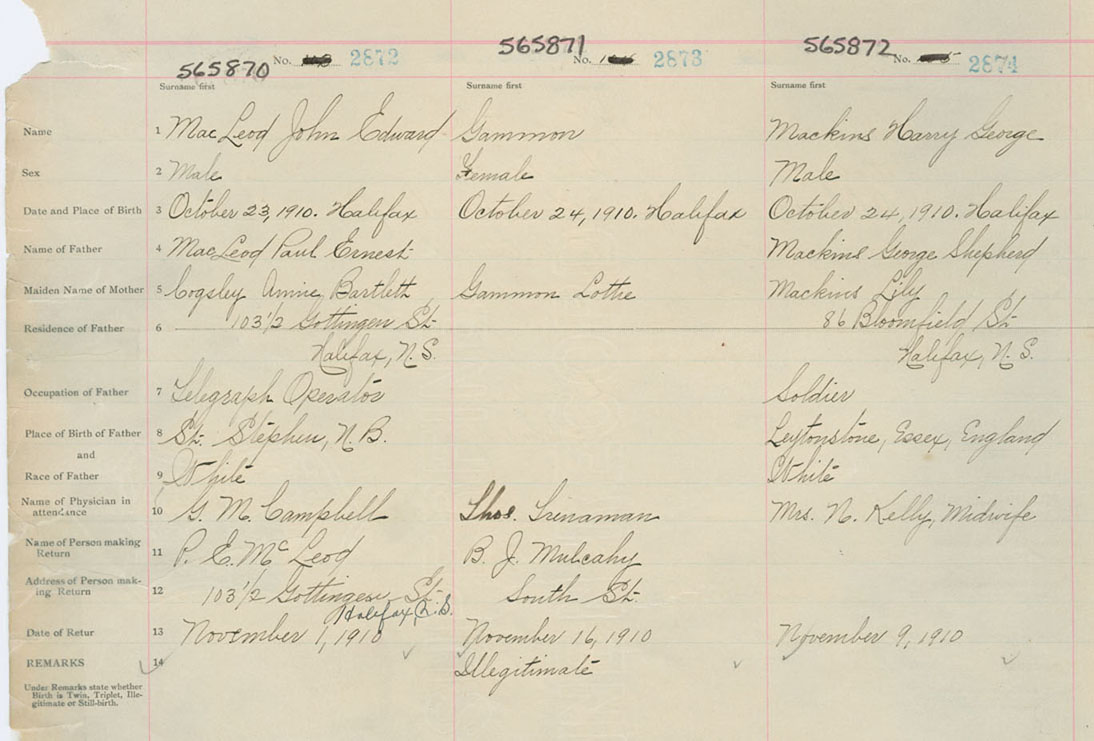 565870 No. 2872 565871 No. 2873 565872 No. 2874
Surname first Surname first Surname first
Name 1 MacLeod John Edward Gammon Mackins Harry George
Sex 2 Male Female Male
Date and Place of Birth 3 October 23, 1910. Halifax October 24, 1910. Halifax October 24, 1910. Halifax
Name of Father 4 MacLeod Paul Ernest Mackins George Shepherd
Maiden Name of Mother 5 Cogsley Annie Bartlett Gammon Lottie Mackins Lily
Residence of Father 6 103 1/2 Gottingen St. 86 Bloomfield St.
Halifax, N.S. Halifax, N.S.
Occupation of Father 7 Telegraph Operator Soldier
Place of Birth of Father 8 St. Stephen, N.B. Leytonstone, Essex, England
and
Race of Father 9 White White
Name of Physician in
attendance 10 G. M. Campbell Thos. Trenaman Mrs. N. Kelly, Midwife
Name of Person making
Return 11 P. E. McLeod B. J. Mulcahy
Address of Person mak-
ing Return 12 103 1/2 Gottingen St. South St.
Halifax N.S.
Date of Retur 13 November 1, 1910 November 16, 1910 November 9, 1910
REMARKS 14 Illegitimate
Under Remarks state whether
Birth is Twin, Triplet, Ille-
gitimate or Still-birth.